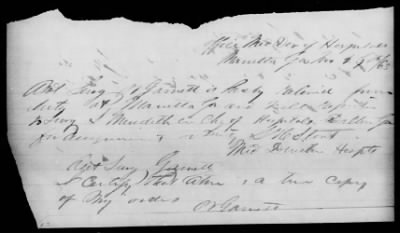 Office Med Dir of Hospitals
Marietta Ga Nov
Asst Surg Garrett is hereby relieved from
duty at Marietta Ga and will report
to Surg S Meredith in Chg of Hospitals Dalton Ga
for assignment to duty S H Stout
Med Director Hospls
Asst Surg Garrett
I Certify that above is a true copy
of My orders
Garrett